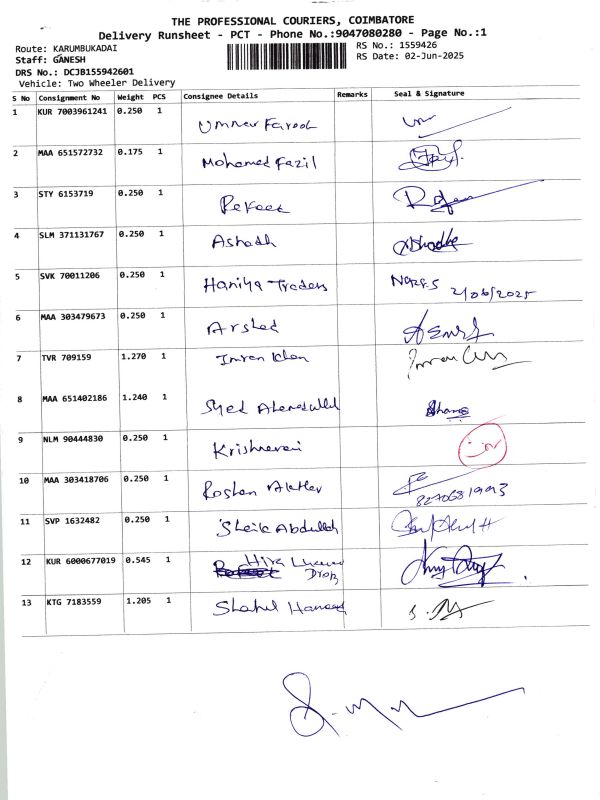 THE PROFESSIONAL COURIERS, COIMBATORE
Delivery Runsheet - PCT - Phone No.:9047080280 - Page No.:1
Route: KARUMBUKADAI
RS No.: 1559426
Staff: GANESH
RS Date: 02-Jun-2025
DRS No.: DCJB155942601
Vehicle: Two Wheeler Delivery
S No Consignment No Weight PCS Consignee Details Remarks Seal & Signature
1 KUR 7003961241 0.250 1 Ummer Farook
2 MAA 651572732 0.175 1 Mohamed Fazil
3 STY 6153719 0.250 1
4 SLM 371131767 0.250 1 Ashadh
5 SVK 70011206 0.250 1 Haniya Traders 2/06/2025
6 MAA 303479673 0.250 1 Arshad
7 TVR 709159 1.270 1 Imran Khan Imran
8 MAA 651402186 1.240 1 Syed
9 NLM 90444830 0.250 1 Krishnaveni
10 MAA 303418706 0.250 1 Roshan Akther 8270681993
11 SVP 1632482 0.250 1 Sheik Abdullah
12 KUR 6000677019 0.545 1 Hira
13 KTG 7183559 1.205 1 Shahul Hameed